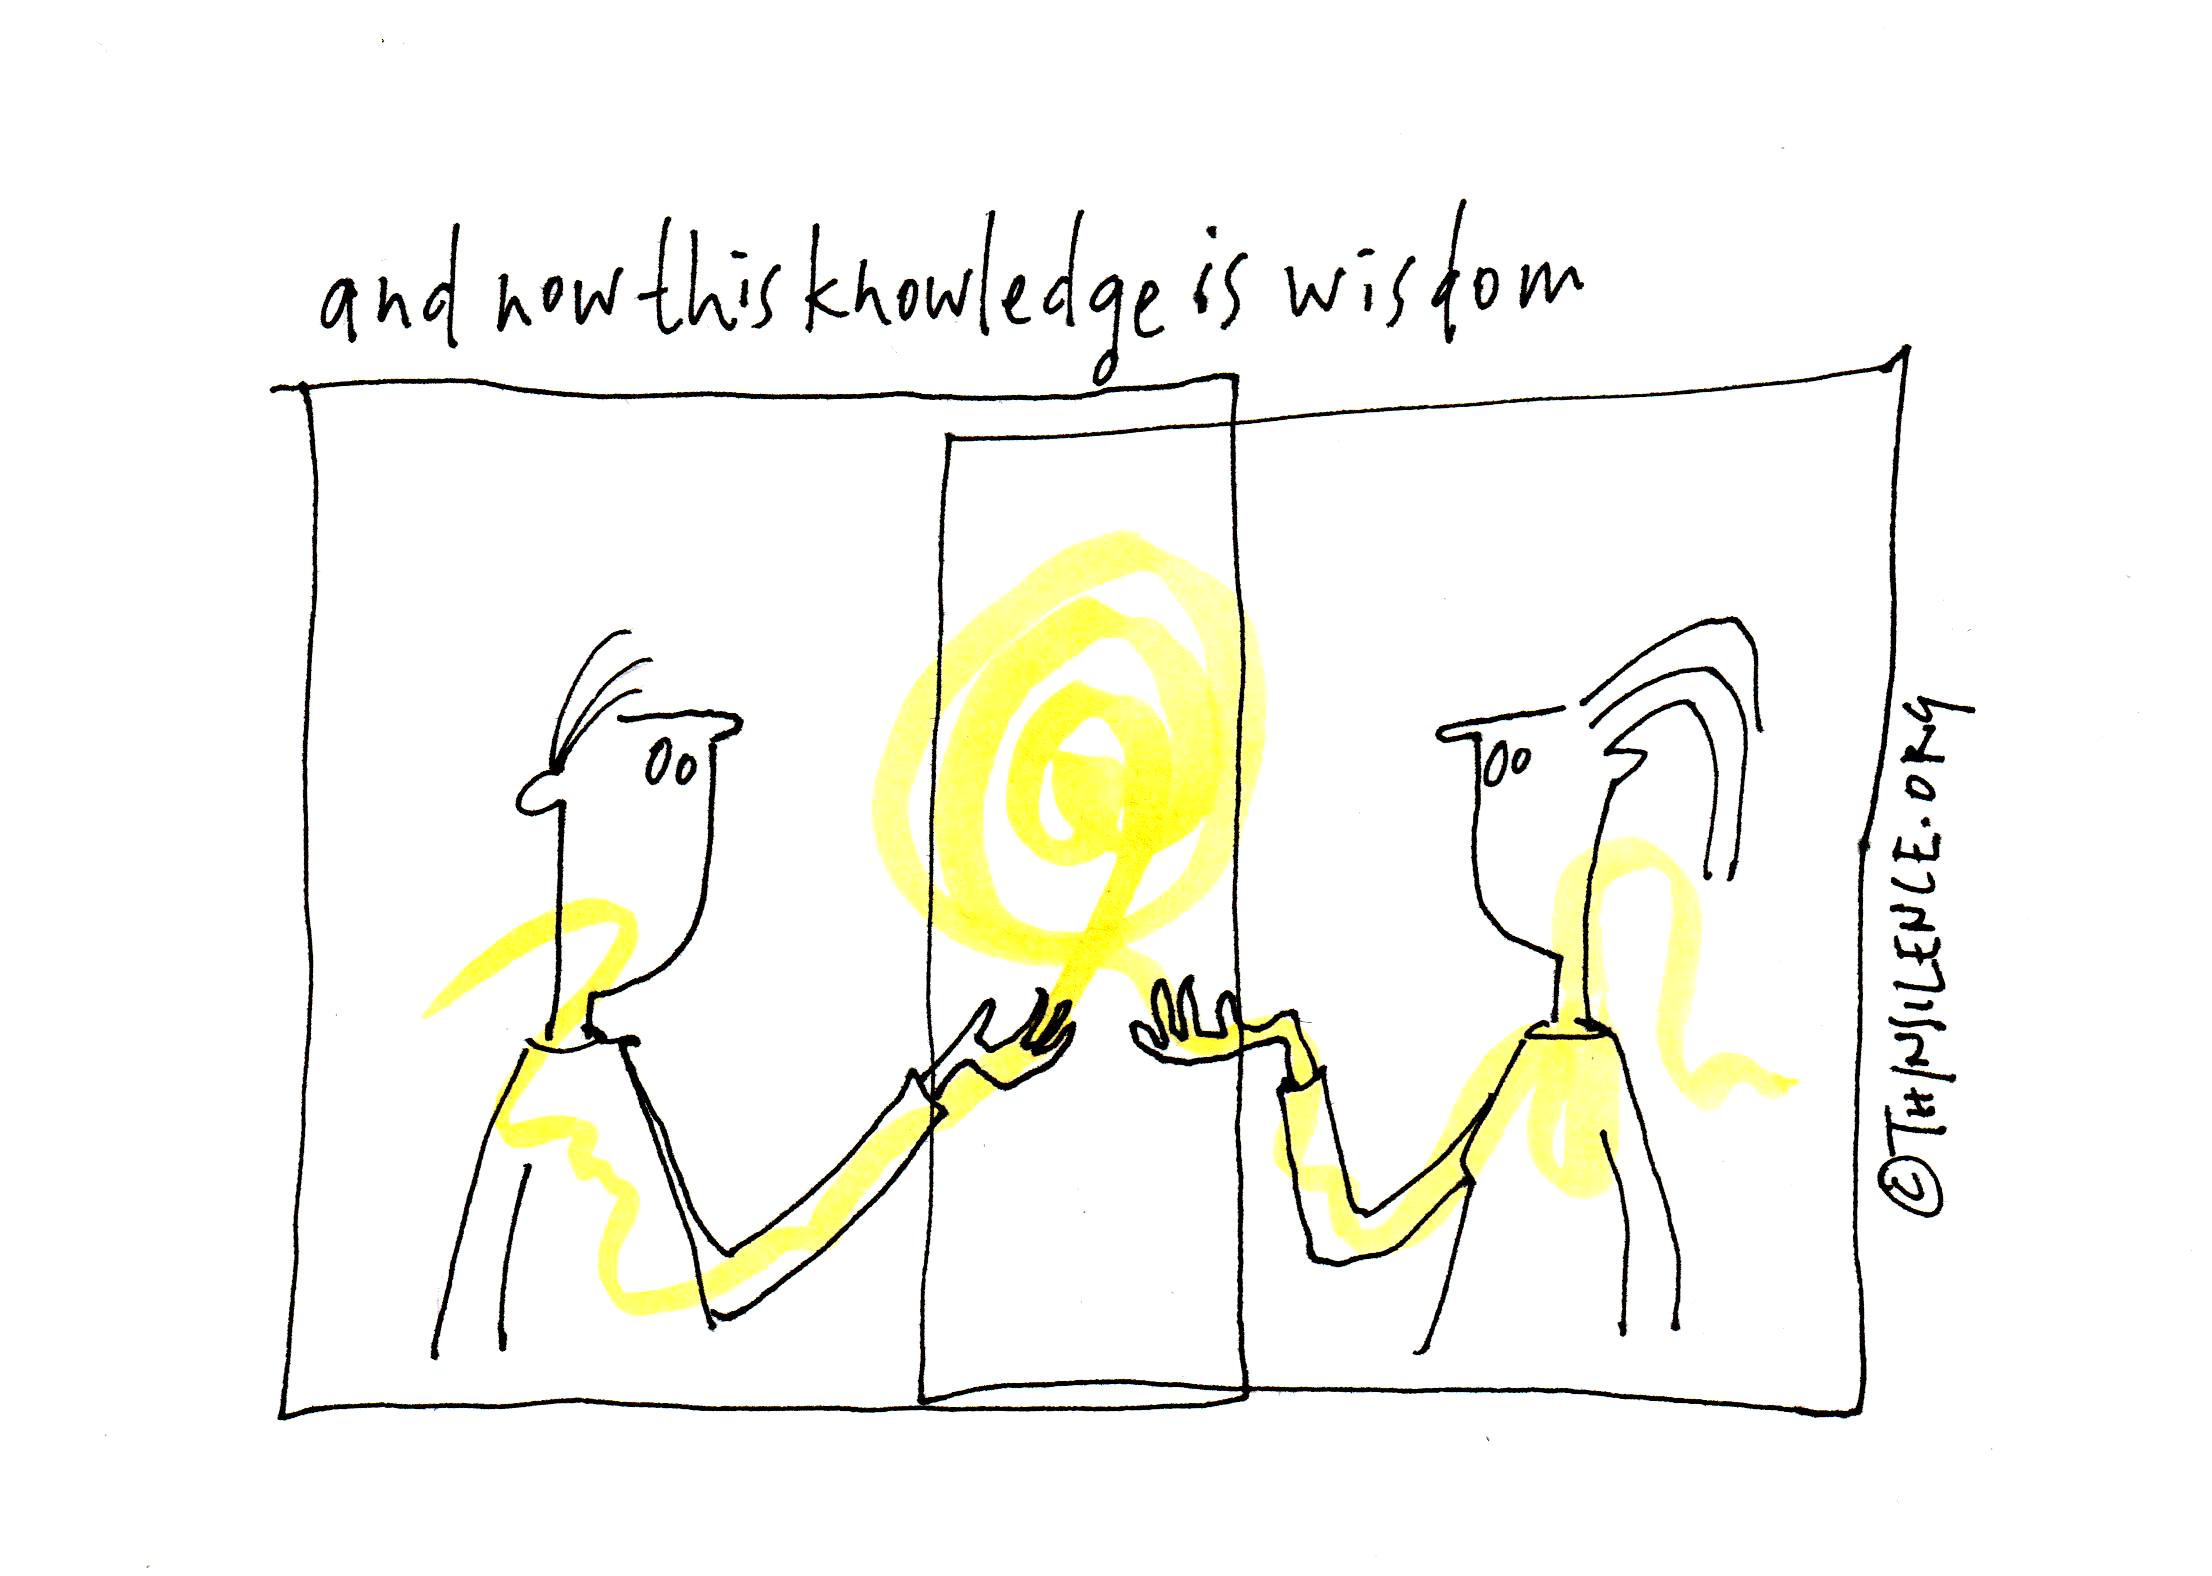 and now this knowledge is wisdom
© THINSILENCE.ORG